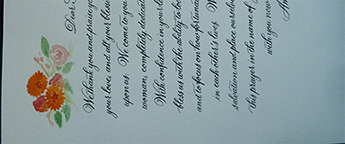 Dear
We thank you and praise y
your love, and all your bless
upon us. We come to you
woman, completely dedicate
With confidence in your l
bless us with the ability to be
and to focus on how fortunate
in each other's lives. W
salvation and place ourselve
this prayer in the name of
with you now